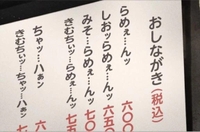 おしながき(税込)
らめぇ…んッ 六〇〇
しおッらめぇ…んッ 六五
みそ…らめぇ…んッ 七〇
きむちぃッ…らめぇ…んッ 七五
ちゃッ…ハぁン
きむちぃッ…ちゃッ…ハぁン